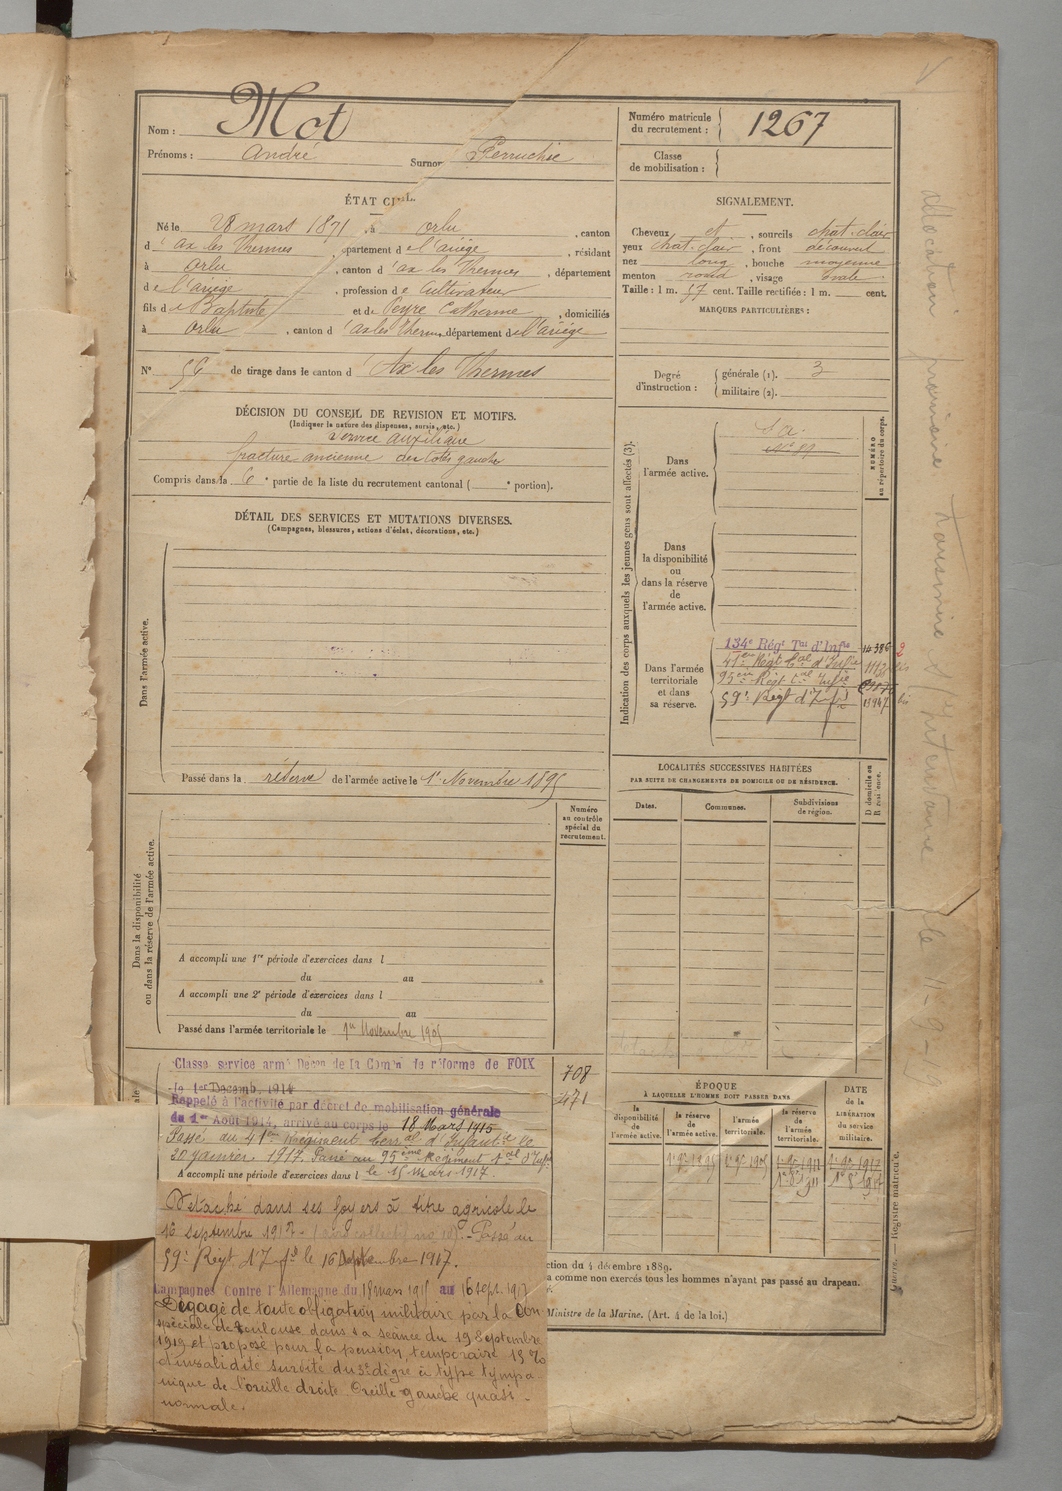 Nom : Mot
Prénoms : André Surnom Perruchie
Numéro matricule du recrutement : 1267
Classe de mobilisation :
ÉTAT CIVIL.
Né le 28 mars 1871, à Orlu, canton
d'ax les Thermes, département de l'ariège, résidant
à Orlu, canton d'ax les Thermes, département
de l'ariège, profession de Cultivateur
fils de Baptiste et de Peyre Catherine, domiciliés
à Orlu, canton d'ax les Thermes département de l'ariège
N° 56 de tirage dans le canton d'Ax les Thermes
SIGNALEMENT.
Cheveux et, sourcils chat. clair
yeux chat. clair, front découvert
nez long, bouche moyenne
menton rond, visage ovale
Taille : 1 m. 57 cent. Taille rectifiée : 1 m. cent.
MARQUES PARTICULIÈRES :
Degré d'instruction : générale (1). 3
militaire (2).
DÉCISION DU CONSEIL DE REVISION ET MOTIFS.
(Indiquer la nature des dispenses, sursis, etc.)
Service auxiliaire
fracture ancienne des côtes gauches
Compris dans la 6e partie de la liste du recrutement cantonal ( e portion).
DÉTAIL DES SERVICES ET MUTATIONS DIVERSES.
(Campagnes, blessures, actions d'éclat, décorations, etc.)
Dans l'armée active.
Passé dans la réserve de l'armée active le 1er Novembre 1895
Indication des corps auxquels les jeunes gens sont affectés (3).
NUMÉRO au répertoire du corps.
Dans l'armée active.
S. a.
N° 89
Dans la disponibilité ou dans la réserve de l'armée active.
Dans l'armée territoriale et dans sa réserve.
134e Régt Tal d'Infie 14386
41em Régt tal d'Infie
95em Régt tal Infie
59e Régt d'Inf 13947 bis
LOCALITÉS SUCCESSIVES HABITÉES
PAR SUITE DE CHANGEMENTS DE DOMICILE OU DE RÉSIDENCE.
Dates. Communes. Subdivisions de région. D domicile ou R résidence.
Dans la disponibilité ou dans la réserve de l'armée active.
Numéro au contrôle spécial du recrutement.
A accompli une 1re période d'exercices dans l
du au
A accompli une 2e période d'exercices dans l
du au
Passé dans l'armée territoriale le 1er Novembre 1905
Classé service armé Décon de la Comon de réforme de FOIX
le 1er Décemb. 1914
Rappelé à l'activité par décret de mobilisation générale
du 1er Août 1914, arrivé au corps le 18 Mars 1915
Passé au 41em Régiment terral d'Infantie le
20 janvier 1917. Passé au 95ème Régiment tal d'Infie
A accompli une période d'exercices dans l le 15 mars 1917.
708
471
Détaché dans ses foyers à titre agricole le
16 septembre 1917 - Passé au
59e Régt d'Inf le 16 septembre 1917.
Campagnes Contre l'Allemagne du 18 mars 1915 au 16 sept. 1917
Dégagé de toute obligation militaire par la Con
spéciale de Toulouse dans sa séance du 19 septembre
1919 et proposé pour la pension temporaire 15 %
d'invalidité surdité du 3e degré à type tympa-
nique de l'oreille droite. Oreille gauche quasi-
normale.
ÉPOQUE
À LAQUELLE L'HOMME DOIT PASSER DANS
la disponibilité de l'armée active. la réserve de l'armée active. l'armée territoriale. la réserve de l'armée territoriale.
DATE de la LIBÉRATION du service militaire.
ction du 4 décembre 1889.
a comme non exercés tous les hommes n'ayant pas passé au drapeau.
Ministre de la Marine. (Art. 4 de la loi.)
Guerre. — Registre matricule.